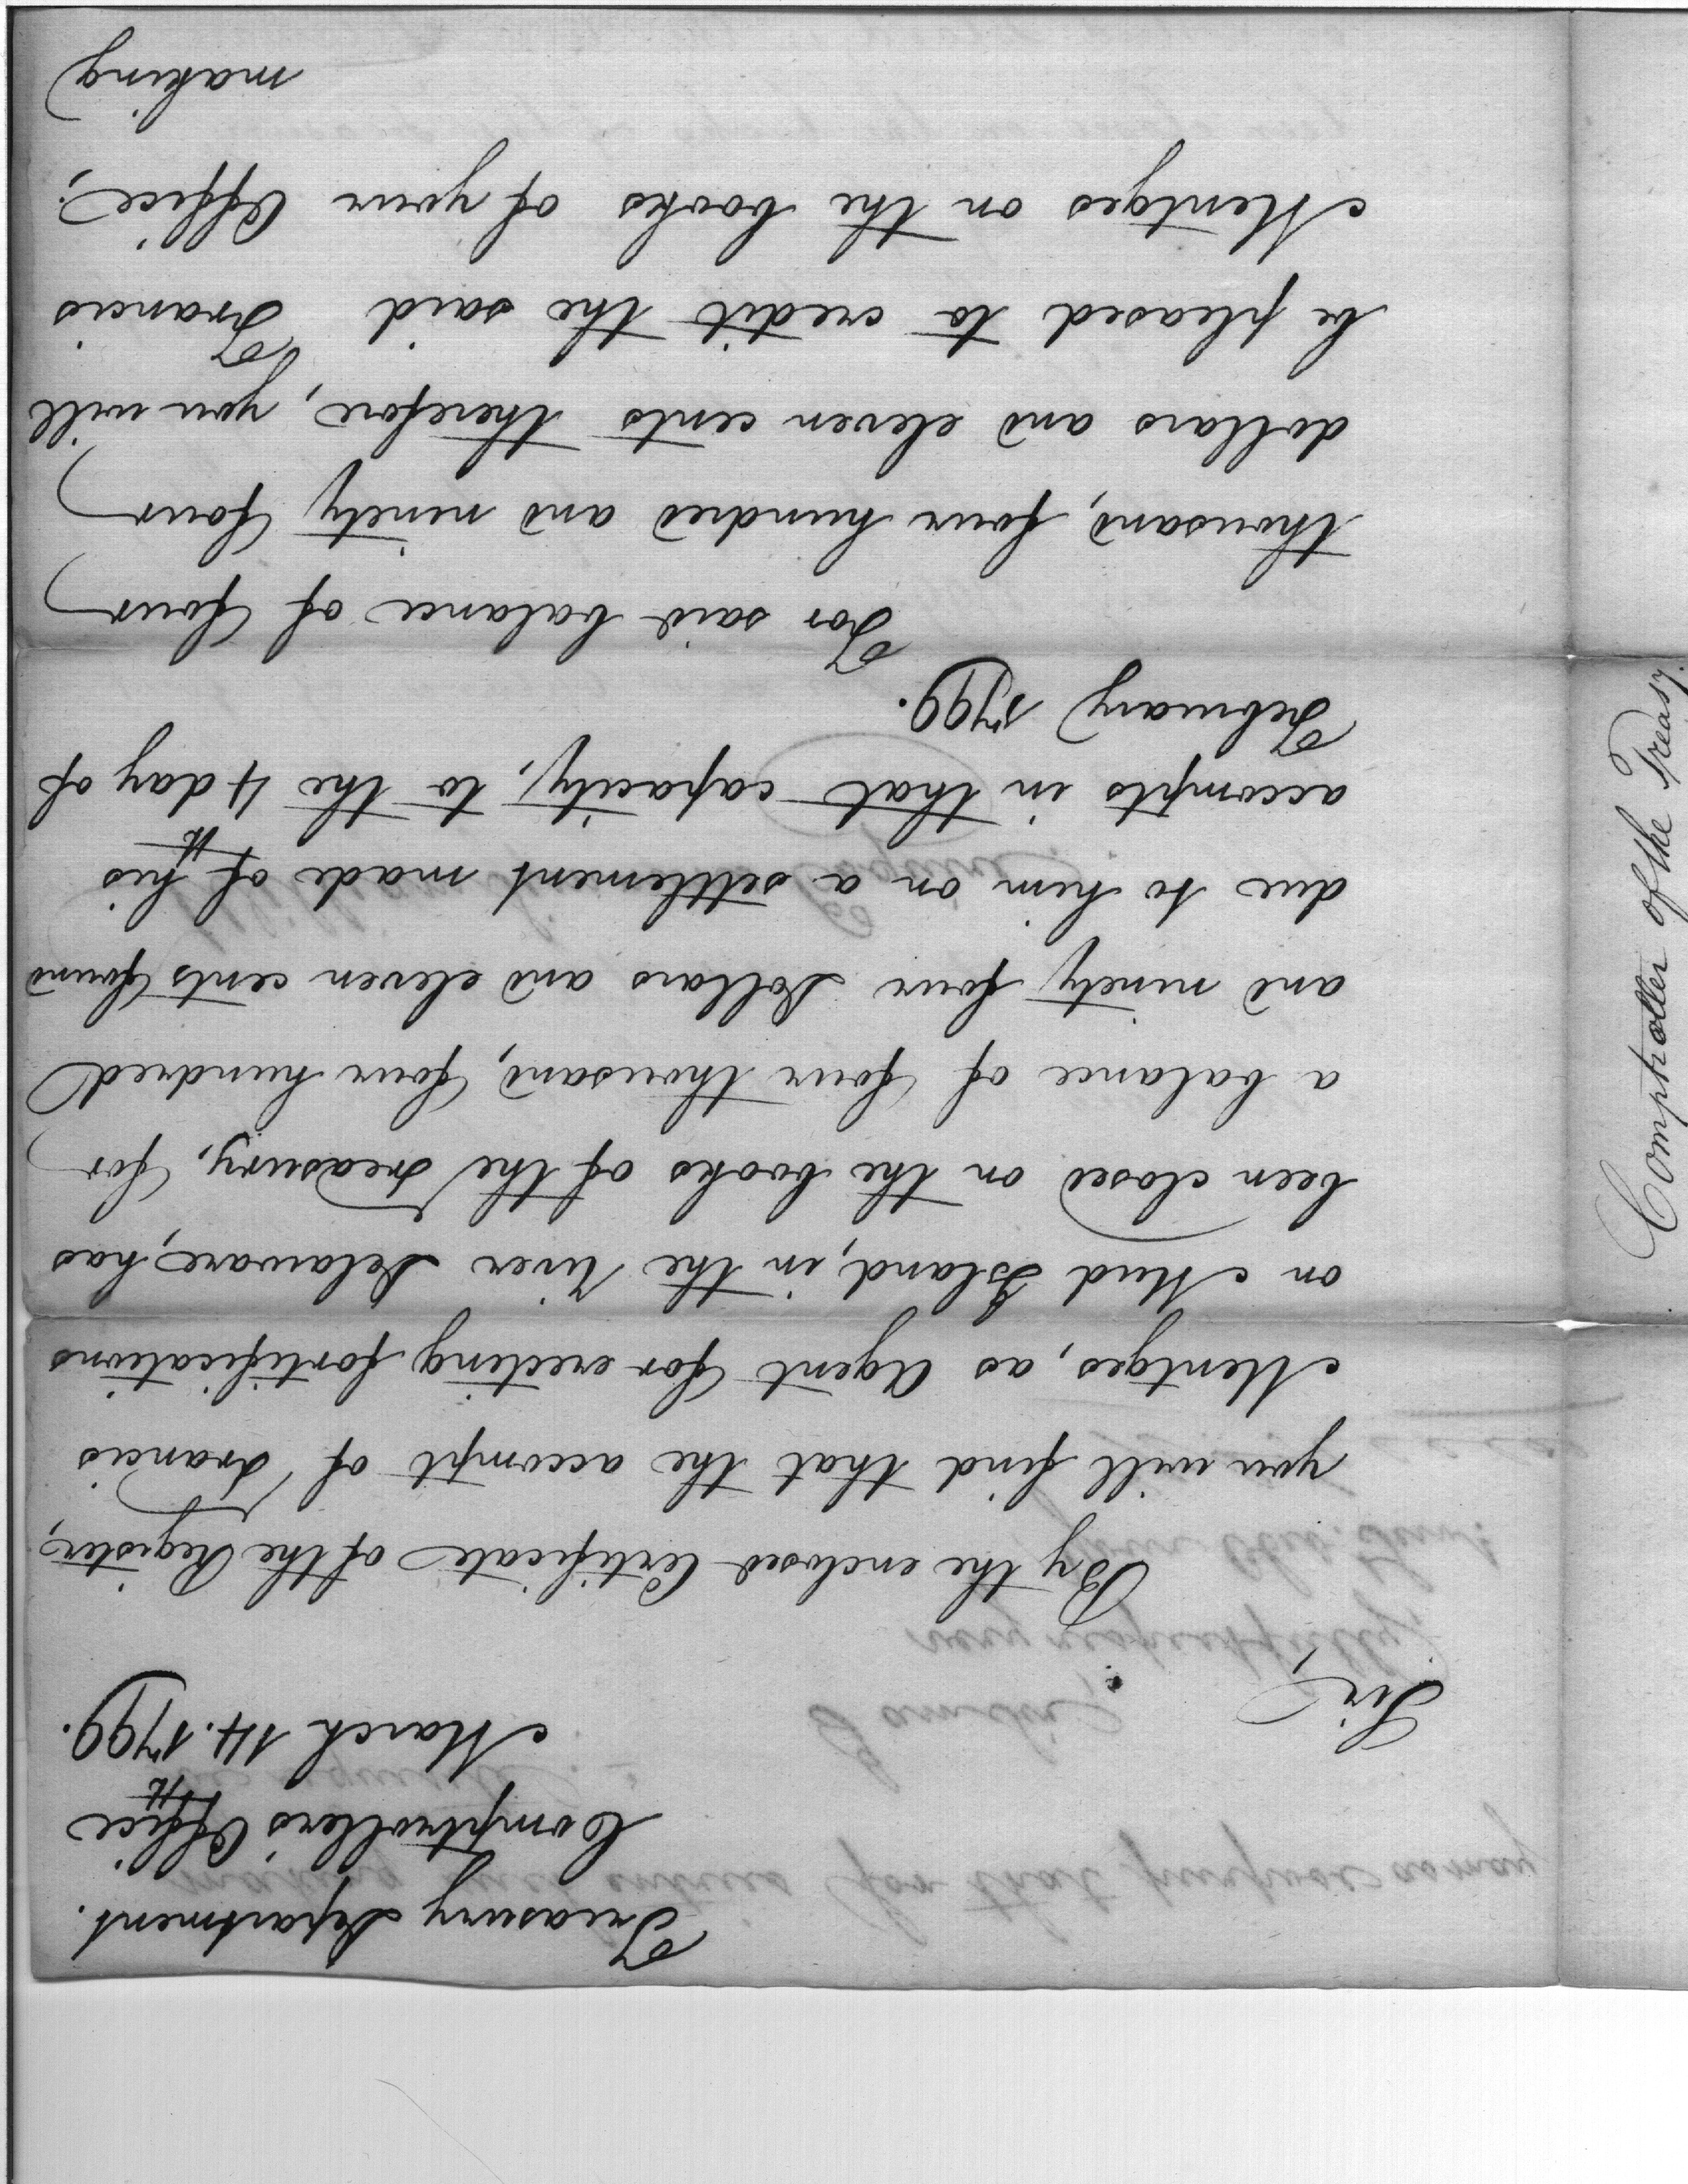 Treasury Department.
Comptrollers Office
March 14. 1799.
Sir,
By the enclosed Certificate of the Register,
you will find that the accompt of Francis
Mentges, as Agent for erecting fortifications
on Mud Island, in the River Delaware, has
been closed on the books of the Treasury, for
a balance of four thousand, four hundred
and ninety four Dollars and eleven cents found
due to him on a settlement made of his
accompts in that capacity, to the 4th day of
February 1799.
For said balance of four
thousand, four hundred and ninety four
dollars and eleven cents therefore, you will
be pleased to credit the said Francis
Mentges on the books of your Office;
making
Comptroller of the Treasy.
making such entries for that purpose as may
be requisite.
I am Sir,
very respectfully,
your Obt. Servt.